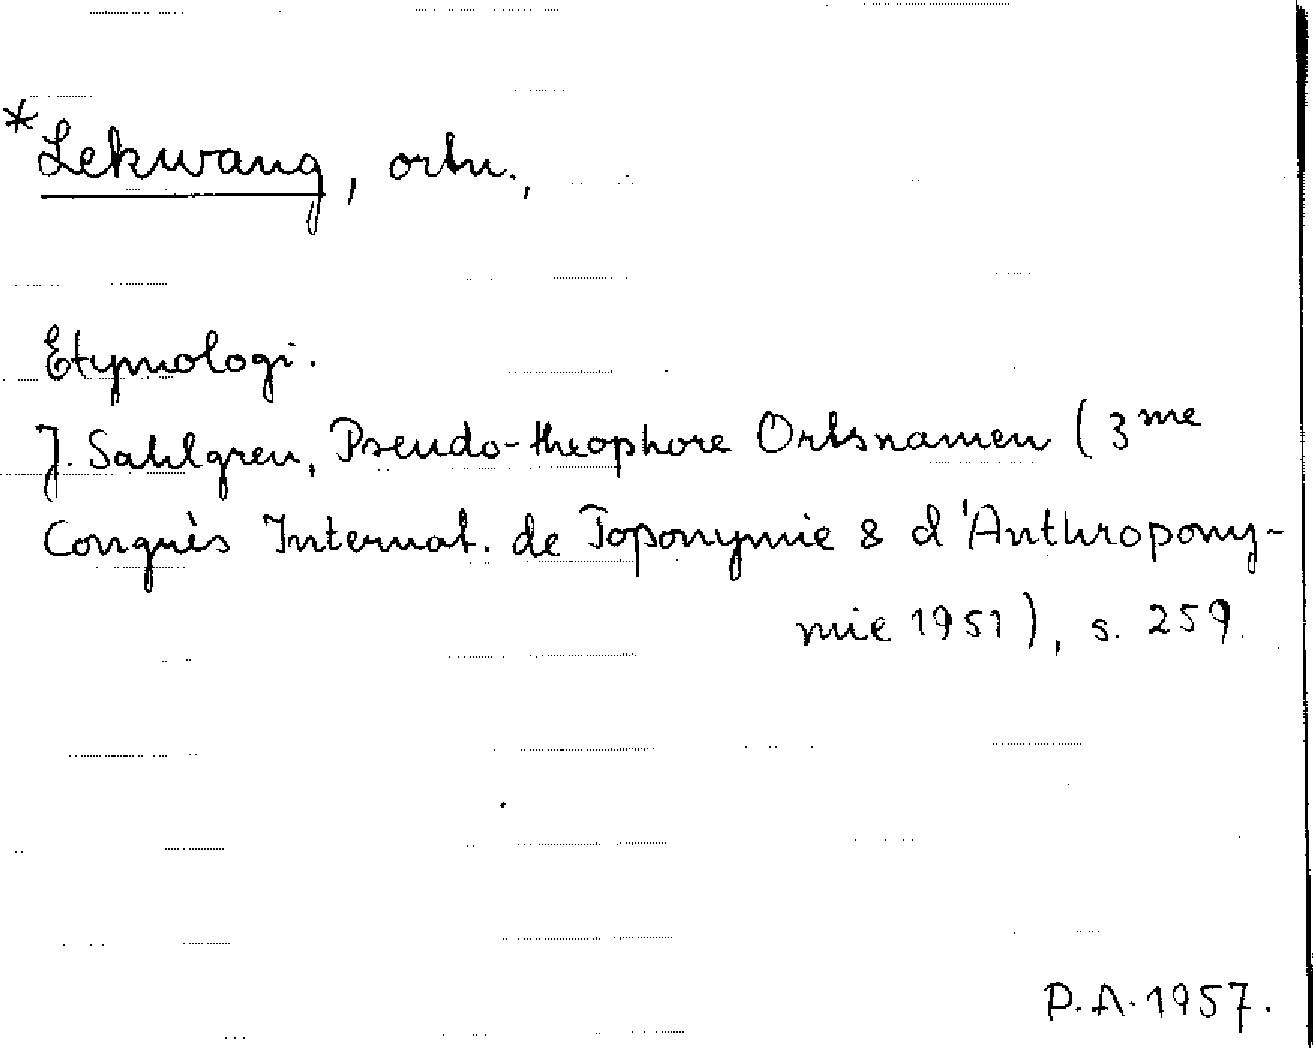 *Lekwang, ortn.,
Etymologi.
J. Sahlgren, Pseudo-theophore Ortsnamen (3me
Congrès Internat. de Toponymie & d'Anthropony-
mie 1951), s. 259.
P.A. 1957.